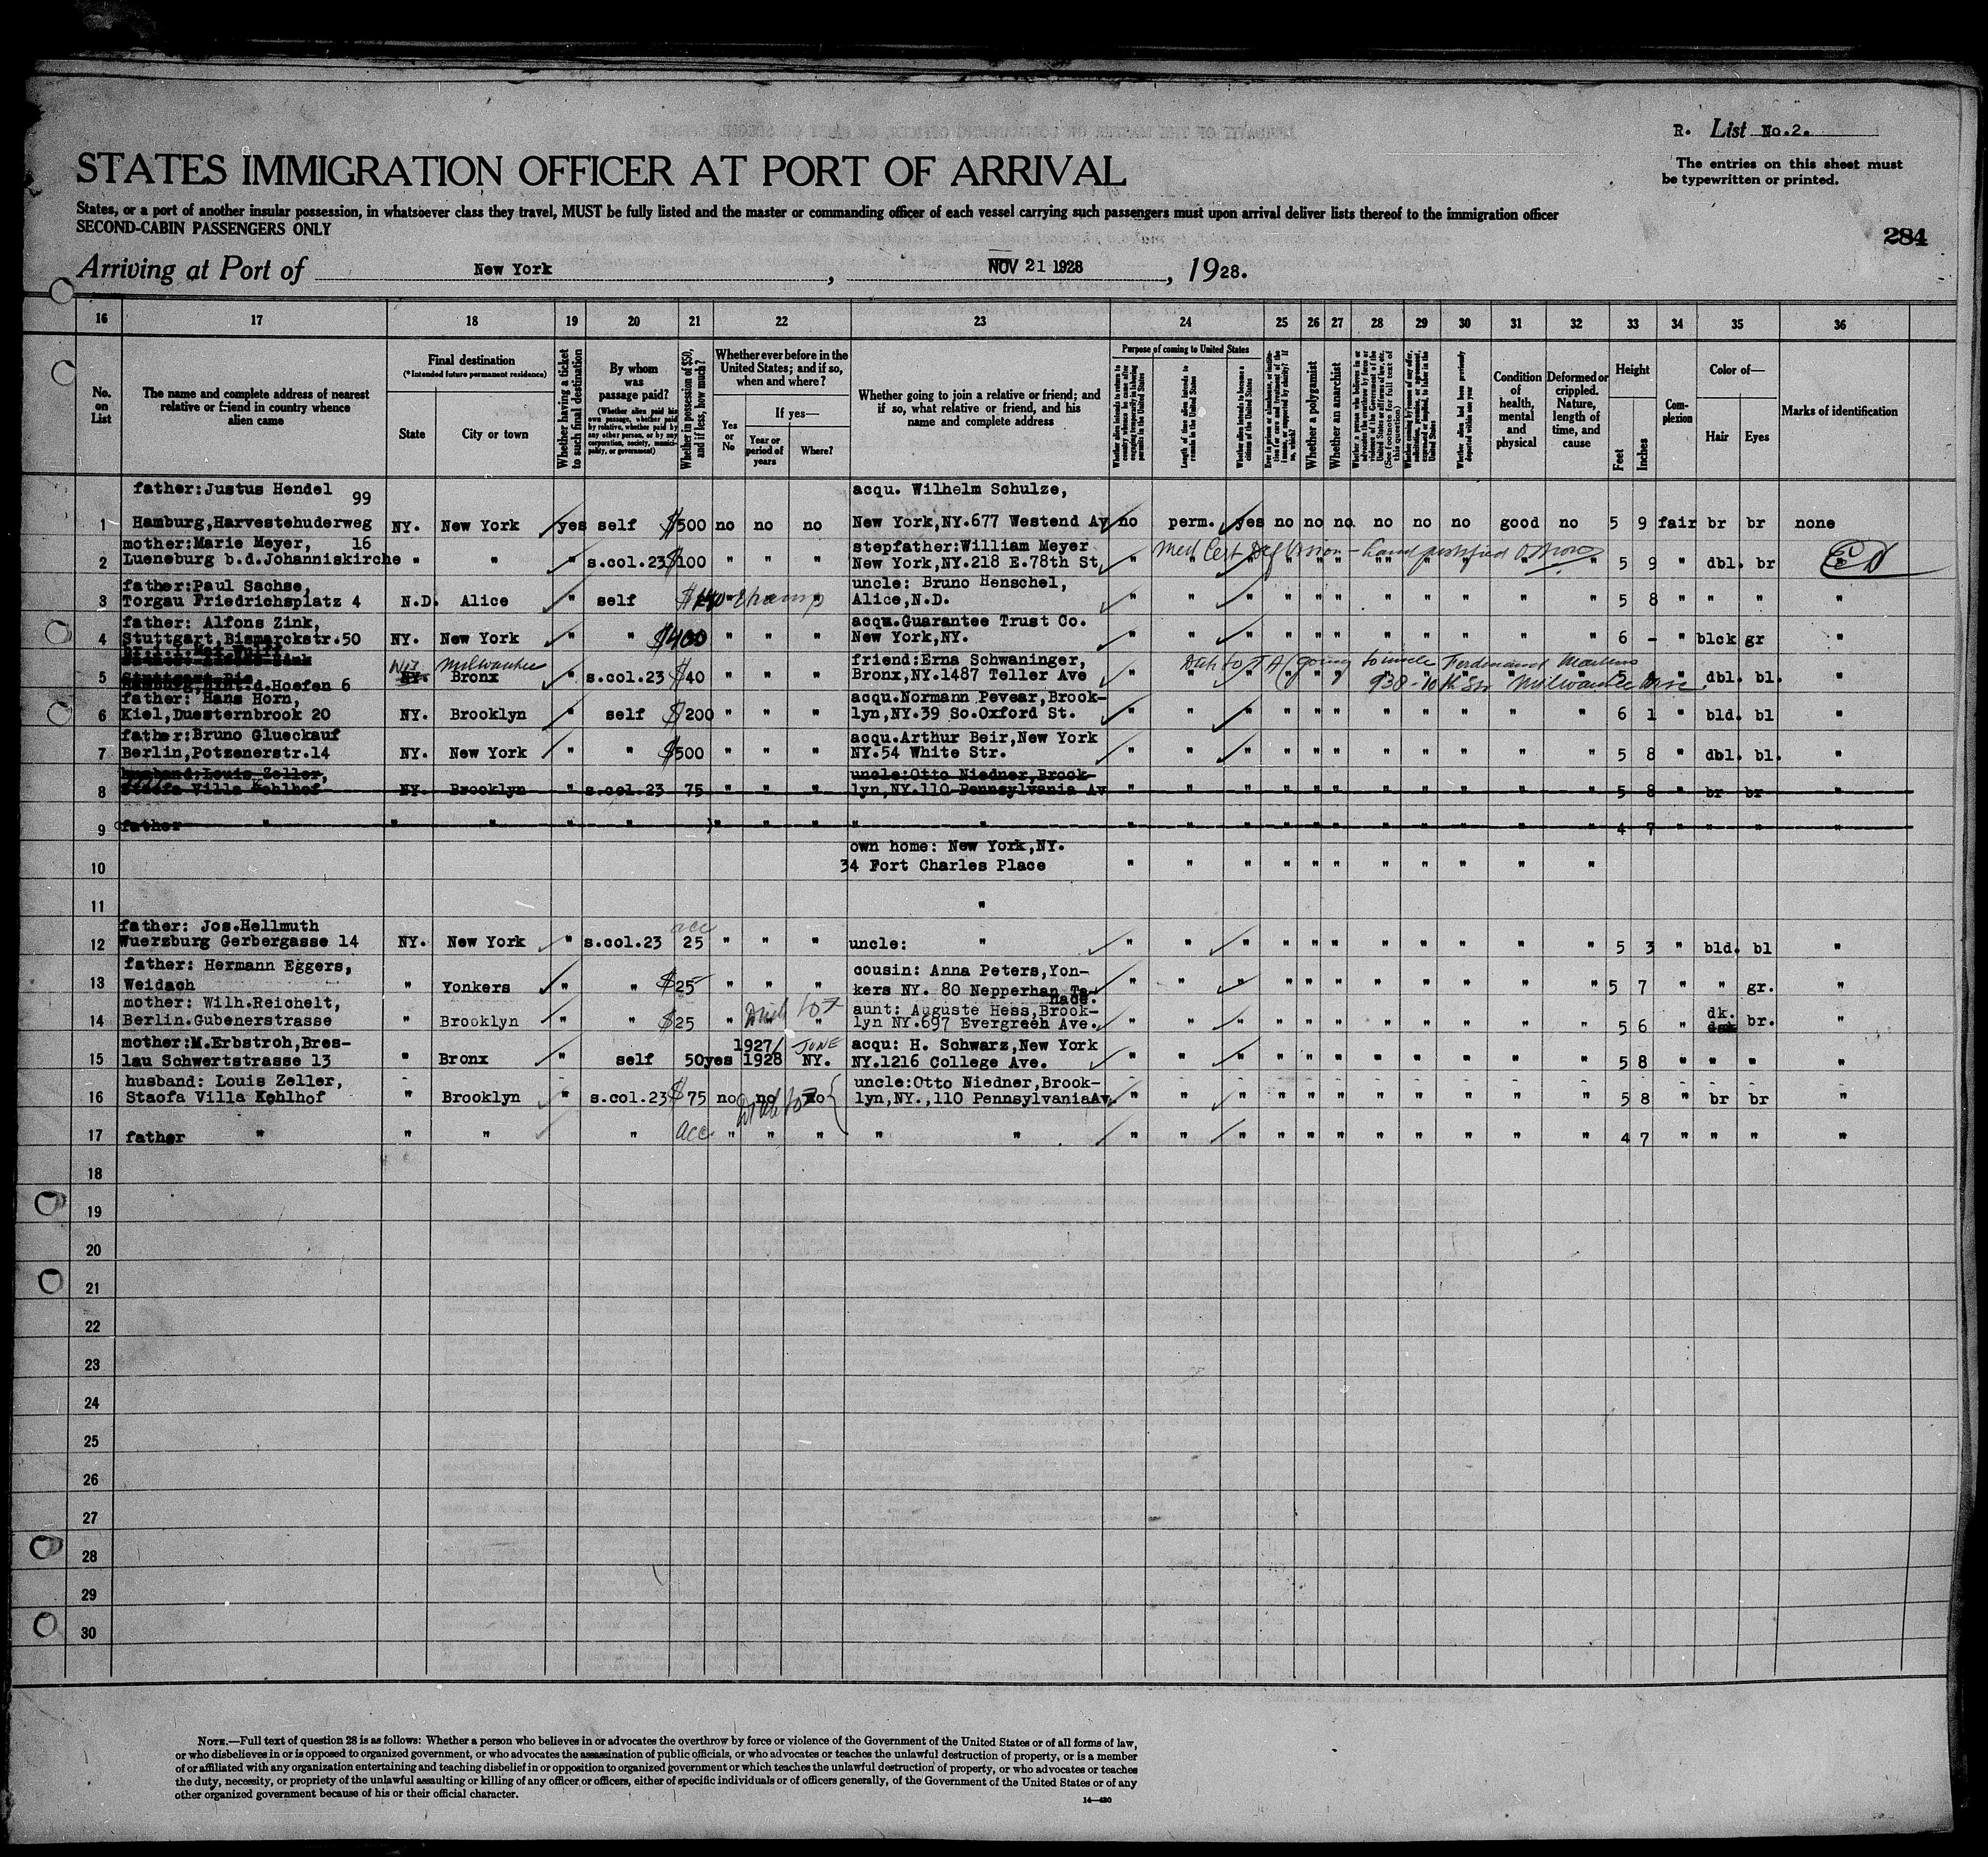 R. List No.2.
STATES IMMIGRATION OFFICER AT PORT OF ARRIVAL
The entries on this sheet must
be typewritten or printed.
States, or a port of another insular possession, in whatsoever class they travel, MUST be fully listed and the master or commanding officer of each vessel carrying such passengers must upon arrival deliver lists thereof to the immigration officer
SECOND-CABIN PASSENGERS ONLY
284
Arriving at Port of New York, NOV 21 1928, 1928.
16 17 18 19 20 21 22 23 24 25 26 27 28 29 30 31 32 33 34 35 36
No. on List
The name and complete address of nearest relative or friend in country whence alien came
Final destination
(*Intended future permanent residence)
State
City or town
Whether having a ticket to such final destination
By whom was passage paid?
(Whether alien paid his own passage, whether paid by relative, whether paid by any other person, or by any corporation, society, municipality, or government)
Whether in possession of $50, and if less, how much?
Whether ever before in the United States; and if so, when and where?
Yes or No
If yes—
Year or period of years
Where?
Whether going to join a relative or friend; and if so, what relative or friend, and his name and complete address
Purpose of coming to United States
Length of time alien intends to remain in the United States
Whether alien intends to become a citizen of the United States
Whether a polygamist
Whether an anarchist
Whether alien had been previously deported within one year
Condition of health, mental and physical
Deformed or crippled. Nature, length of time, and cause
Height
Feet
Inches
Complexion
Color of—
Hair
Eyes
Marks of identification
father:Justus Hendel 99 acqu. Wilhelm Schulze,
1 Hamburg,Harvestehuderweg NY. New York yes self $500 no no no New York,NY.677 Westend Av no perm. yes no no no no no no good no 5 9 fair br br none
mother:Marie Meyer, 16 stepfather:William Meyer
2 Lueneburg b.d.Johanniskirche " " " s.col.23 $100 " " " New York,NY.218 E.78th St. " " " " " " " " " " " 5 9 " dbl. br "
father:Paul Sachse, uncle: Bruno Henschel,
3 Torgau Friedrichsplatz 4 N.D. Alice " self Alice,N.D. " " " " " " " " " " " 5 8 " " " "
father: Alfons Zink, acqu.Guarantee Trust Co.
4 Stuttgart,Bismarckstr.50 NY. New York " " $400 " " " New York,NY. " " " " " " " " " " " 6 - " blck gr "
Milwaukee friend:Erna Schwaninger, going to uncle Ferdinand
5 Hamburg,Hint.d.Hoefen 6 NY. Bronx " s.col.23 $40 " " " Bronx,NY.1487 Teller Ave 938-10th St. Milwaukee dbl. bl. "
father: Hans Horn, acqu.Normann Pevear,Brook-
6 Kiel,Duesternbrook 20 NY. Brooklyn " self $200 " " " lyn,NY.39 So.Oxford St. " " " " " " " " " " " 6 1 " bld. bl "
father:Bruno Glueckauf acqu.Arthur Beir,New York
7 Berlin,Potzenerstr.14 NY. New York " " $500 " " " NY.54 White Str. " " " " " " " " " " " 5 8 " dbl. bl. "
husband:Louis Zeller, uncle:Otto Niedner,Brook-
8 Staofa Villa Kehlhof NY. Brooklyn " s.col.23 75 " " " lyn,NY.110 Pennsylvania Av " " " " " " " " " " " 5 8 br br "
9 father " " " " " " " " " " " " " " " " " " " " " " 4 7 " " "
own home: New York,NY.
10 34 Fort Charles Place " " " " " " " " " " "
11 "
father: Jos.Hellmuth acc
12 Wuerzburg Gerbergasse 14 NY. New York " s.col.23 25 " " " uncle: " " " " " " " " " " " " " 5 3 " bld. bl "
father: Hermann Eggers, cousin: Anna Peters,Yon-
13 Weidach " Yonkers " " $25 kers NY. 80 Nepperhan Te- " " " " " " " " " " " 5 7 " " gr. "
mother: Wilh.Reichelt, aunt: Auguste Hess,Brook- dk.
14 Berlin.Gubenerstrasse " Brooklyn " " $25 " " " lyn NY.697 Evergreen Ave. " " " " " " " " " " " 5 6 " br. "
mother:M.Erbstroh,Bres- 1927/ JUNE acqu: H. Schwarz,New York
15 lau Schwertstrasse 13 " Bronx " self 50 yes 1928 NY. NY.1216 College Ave. " " " " " " " " " " " 5 8 " " " "
husband: Louis Zeller, uncle:Otto Niedner,Brook-
16 Staofa Villa Kehlhof " Brooklyn " s.col.23 $75 no no no lyn,NY.,110 PennsylvaniaAv. " " " " " " " " " " " 5 8 " br br "
17 father " " " " acc " " " " " " " " " " " " " " " " " 4 7 " " " "
18
19
20
21
22
23
24
25
26
27
28
29
30
NOTE.—Full text of question 28 is as follows: Whether a person who believes in or advocates the overthrow by force or violence of the Government of the United States or of all forms of law,
or who disbelieves in or is opposed to organized government, or who advocates the assassination of public officials, or who advocates or teaches the unlawful destruction of property, or is a member
of or affiliated with any organization entertaining and teaching disbelief in or opposition to organized government or which teaches the unlawful destruction of property, or who advocates or teaches
the duty, necessity, or propriety of the unlawful assaulting or killing of any officer or officers, either of specific individuals or of officers generally, of the Government of the United States or of any
other organized government because of his or their official character.
14—430